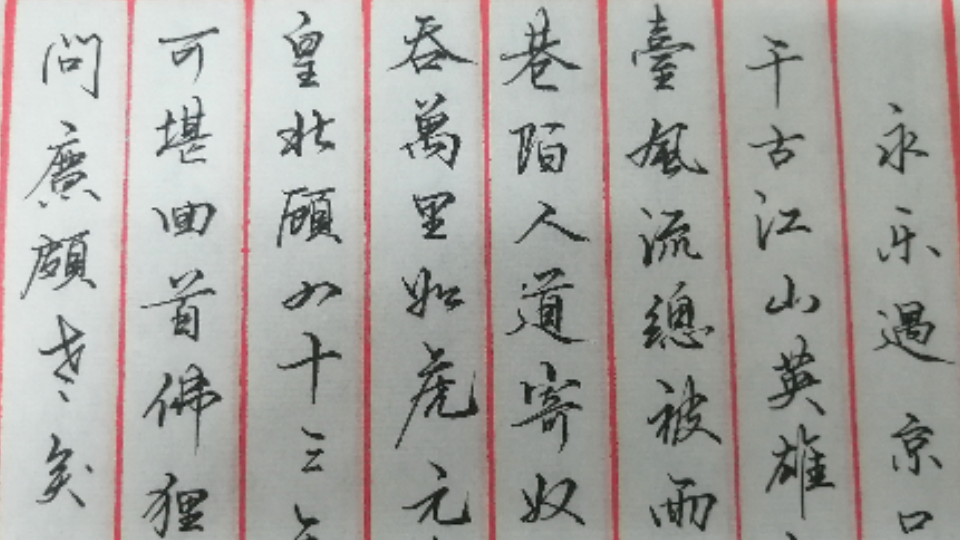 永乐過京口
千古江山英雄
臺風流總被雨
巷陌人道寄奴
吞萬里如虎元
皇北顧四十三
可堪回首佛狸
問廉頗老矣